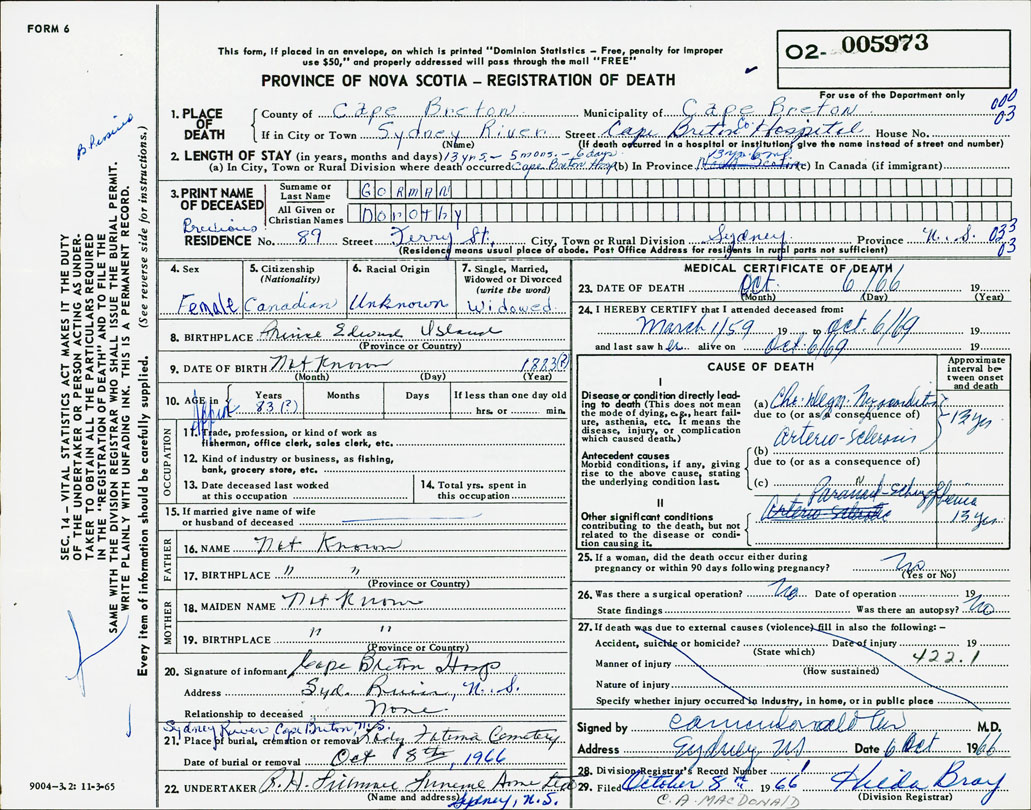 FORM 6
This form, if placed in an envelope, on which is printed "Dominion Statistics – Free, penalty for improper
use $50," and properly addressed will pass through the mail "FREE"
PROVINCE OF NOVA SCOTIA – REGISTRATION OF DEATH
O2- 005973
For use of the Department only
000
03
1. PLACE OF DEATH
County of Cape Breton Municipality of Cape Breton
If in City or Town Sydney River Street Cape Breton Co Hospital House No.
(Name) (If death occurred in a hospital or institution, give the name instead of street and number)
2. LENGTH OF STAY (in years, months and days) 13 yrs. – 5 mons. – 6 days
(a) In City, Town or Rural Division where death occurred Cape Breton Hosp (b) In Province (c) In Canada (if immigrant)
3. PRINT NAME OF DECEASED
Surname or Last Name GORMAN
All Given or Christian Names Dorothy
Previous
RESIDENCE No. 89 Street Terry St. City, Town or Rural Division Sydney Province N. S. 033
03
(Residence means usual place of abode. Post Office Address for residents in rural parts not sufficient)
4. Sex
Female
5. Citizenship
(Nationality)
Canadian
6. Racial Origin
Unknown
7. Single, Married,
Widowed or Divorced
(write the word)
Widowed
8. BIRTHPLACE Prince Edward Island
(Province or Country)
9. DATE OF BIRTH Not Known 1883(?)
(Month) (Day) (Year)
10. AGE in Approx Years 83 (?) Months Days If less than one day old
hrs. or min.
OCCUPATION
11. Trade, profession, or kind of work as
fisherman, office clerk, sales clerk, etc.
12. Kind of industry or business, as fishing,
bank, grocery store, etc.
13. Date deceased last worked
at this occupation
14. Total yrs. spent in
this occupation
15. If married give name of wife
or husband of deceased
FATHER
16. NAME Not Known
17. BIRTHPLACE " "
(Province or Country)
MOTHER
18. MAIDEN NAME Not Known
19. BIRTHPLACE " "
(Province or Country)
20. Signature of informant Cape Breton Hosp
Address Syd. River, N. S.
Relationship to deceased None
Sydney River Cape Breton, N.S.
21. Place of burial, cremation or removal Lady Fatima Cemetery
Date of burial or removal Oct 8th, 1966
22. UNDERTAKER Home Ltd
(Name and address) Sydney, N.S.
MEDICAL CERTIFICATE OF DEATH
23. DATE OF DEATH Oct. 6/66 19
(Month) (Day) (Year)
24. I HEREBY CERTIFY that I attended deceased from:
March 1/59 19 to Oct. 6/69 19
and last saw her alive on Oct. 6/69 19
CAUSE OF DEATH
Approximate
interval be-
tween onset
and death
I
Disease or condition directly lead-
ing to death (This does not mean
the mode of dying, e.g., heart fail-
ure, asthenia, etc. It means the
disease, injury, or complication
which caused death.)
(a) Chr. degn. Myocarditis
due to (or as a consequence of) 13 yrs
Arterio-sclerosis
Antecedent causes
Morbid conditions, if any, giving
rise to the above cause, stating
the underlying condition last.
(b)
due to (or as a consequence of)
(c)
II
Other significant conditions
contributing to the death, but not
related to the disease or condi-
tion causing it.
Paranoid-schizophrenia
Arterio-sclerotic 13 yrs
25. If a woman, did the death occur either during
pregnancy or within 90 days following pregnancy? No
(Yes or No)
26. Was there a surgical operation? No Date of operation 19
State findings Was there an autopsy? No
27. If death was due to external causes (violence) fill in also the following: –
Accident, suicide or homicide? Date of injury 19
(State which) 422.1
Manner of injury
(How sustained)
Nature of injury
Specify whether injury occurred in industry, in home, or in public place
Signed by M.D.
Address Sydney NS Date 6 Oct 1966
28. Division Registrar's Record Number
29. Filed October 8th 1966 Hilda Bray
C. A. MACDONALD (Division Registrar)
SEC. 14 – VITAL STATISTICS ACT MAKES IT THE DUTY
OF THE UNDERTAKER OR PERSON ACTING AS UNDER-
TAKER TO OBTAIN ALL THE PARTICULARS REQUIRED
IN THE "REGISTRATION OF DEATH" AND TO FILE THE
SAME WITH THE DIVISION REGISTRAR WHO SHALL ISSUE THE BURIAL PERMIT.
WRITE PLAINLY WITH UNFADING INK. THIS IS A PERMANENT RECORD.
Every item of information should be carefully supplied. (See reverse side for instructions.)
9004-3.2: 11-3-65